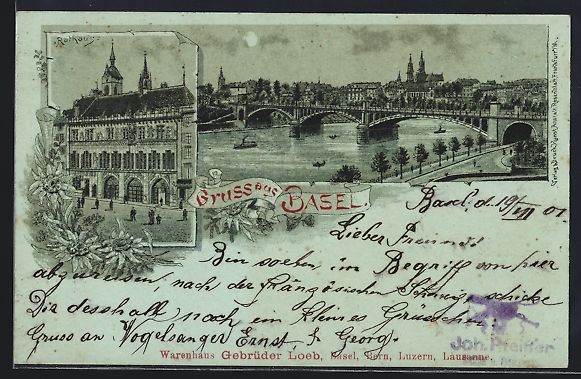 Rathaus.
Gruss aus BASEL.
Basel, d. 19/VII 01
Lieber Freund!
Bin soeben, im Begriff von hier
abzureisen, nach der französischen Schweiz, schicke
Dir desshalb noch ein kleines Grusschen
Gruss an Vogelsanger Ernst, & Georg.
Joh. Pfeiffer
Warenhaus Gebrüder Loeb, Basel, Bern, Luzern, Lausanne.